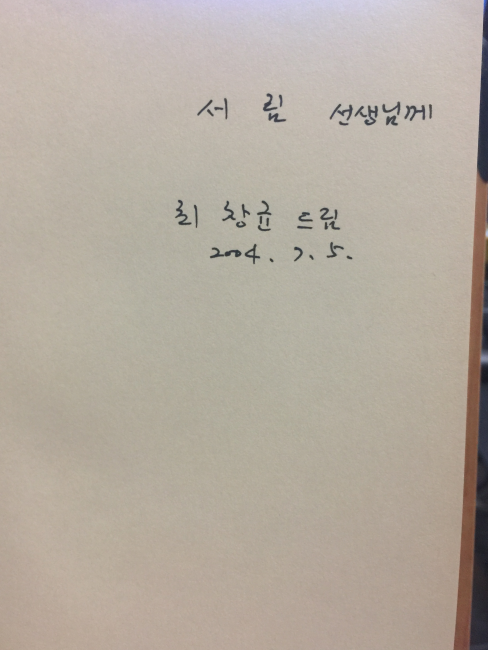 서 림 선생님께
최 창균 드림
2004. 7. 5.